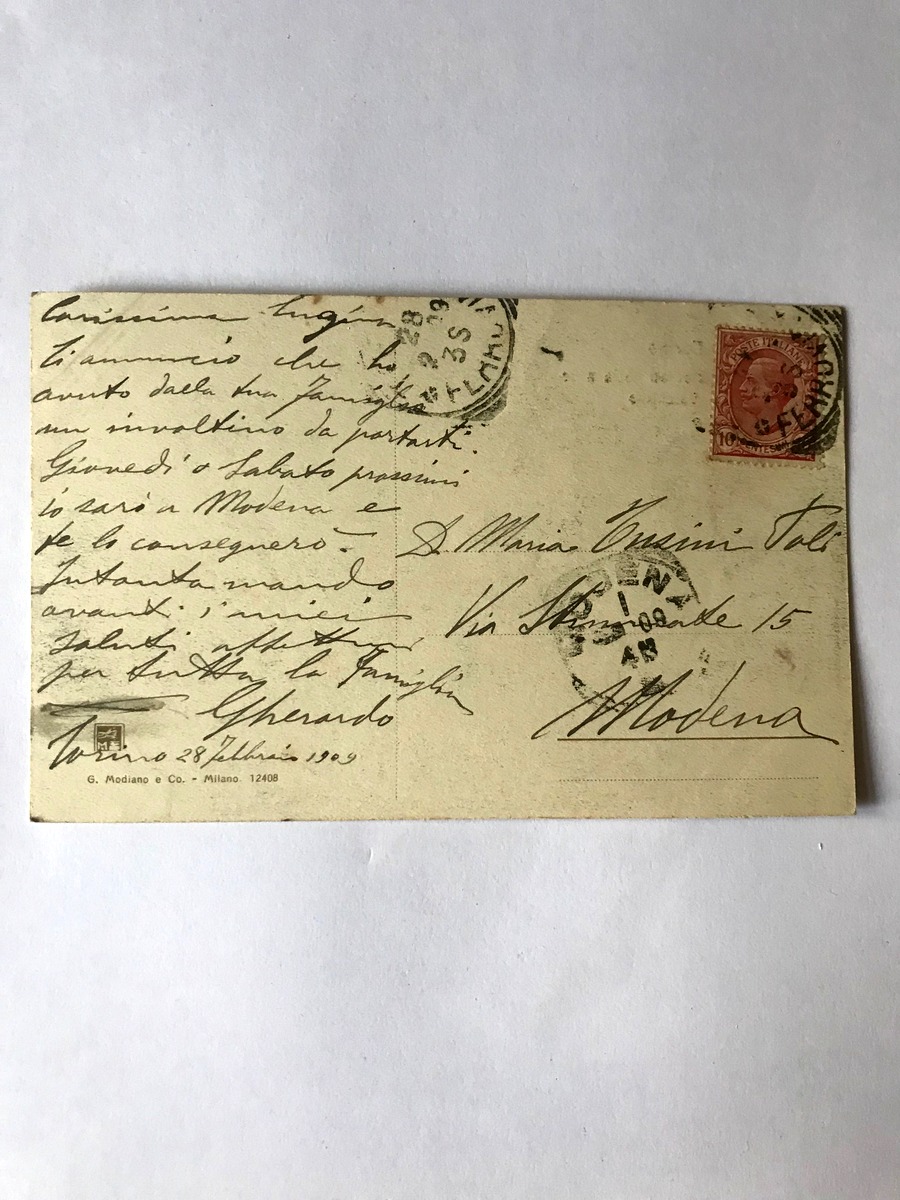 Carissima Cugina
ti annuncio che ho
avuto dalla tua Famiglia
un involtino da portarti.
Giovedì o Sabato prossimi
io sarò a Modena e
te lo consegnerò.
Intanto mando
avanti i miei
saluti
per tutta la Famiglia
Gherardo
Torino 28 Febbraio 1909
G. Modiano e Co. - Milano 12408
28 2 09
3S
FERROVIA
POSTE ITALIANE
10
FERROVIA
D. Maria Tusini
Via Stimmate 15
Modena
MODENA
1
09